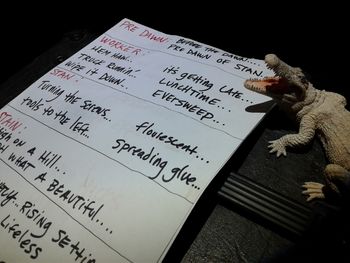 PRE DAWN: BEFORE THE DAWN...
PRE DAWN OF STAN...
WORKER:
HEM HAW..
TRUCE RUMIN'..
WIPE IT DOWN..
its getting LATE..
LUNCHTIME..
EVERSWEEP..
STAN:
Turning the screws..
tools to the left..
flouriescent...
spreading glue..
STAIN:
on a Hill...
WHAT A BEAUTIFUL...
Rising Setting
Liteless